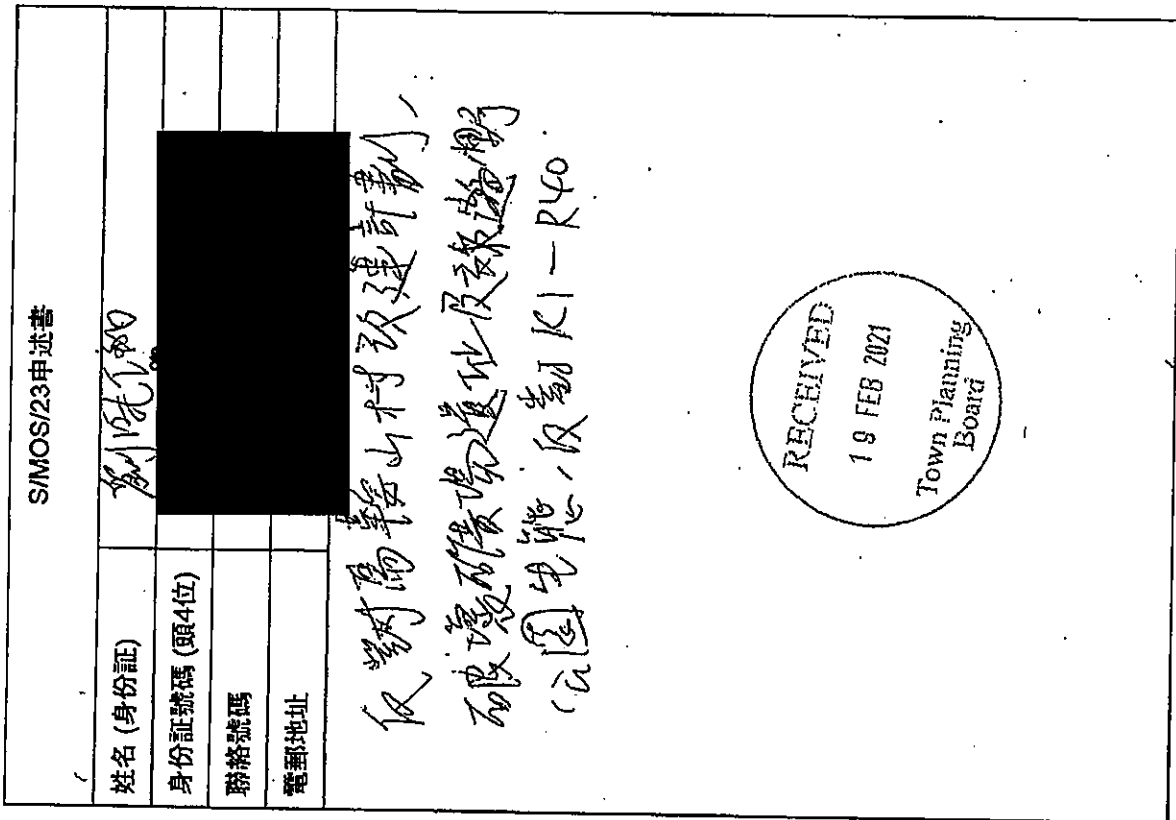 S/MOS/23申述書
姓名 (身份証)
身份証號碼 (頭4位)
聯絡號碼
電郵地址
反對馬鞍山村建計劃、
破壞礦場遺址及
公園生態、反對K1－R40
RECEIVED
19 FEB 2021
Town Planning
Board